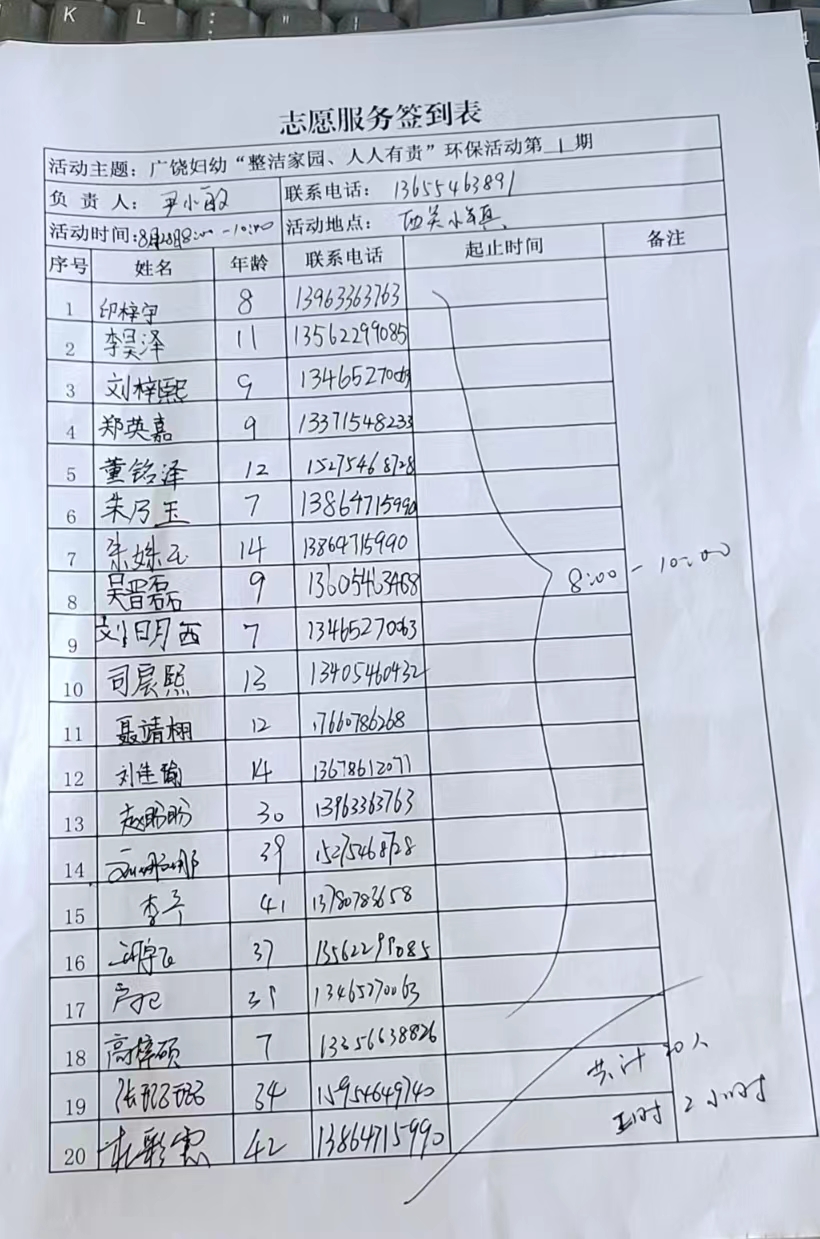 K L : ; " '
志愿服务签到表
活动主题: 广饶妇幼“整洁家园、人人有责”环保活动第 1 期
负责人: 尹小敏 联系电话: 13655463891
活动时间: 8月28日8:00-10:00 活动地点: 西关小镇
序号 姓名 年龄 联系电话 起止时间 备注
1 印梓宇 8 13963363763
2 李昊泽 11 13562299085
3 刘梓熙 9 13465270063
4 郑英嘉 9 13371548233
5 董铭泽 12 15275468728
6 朱乃玉 7 13864715990
7 朱姝玉 14 13864715990
8 吴晋磊 9 13605463468
9 刘明西 7 13465270063
8:00-10:00
10 司宸熙 13 13405460432
11 聂靖栩 12 17660786268
12 刘佳瑜 14 13678612077
13 赵盼盼 30 13963363763
14 39 15275468728
15 李 41 13780783658
16 37 13562299085
17 39 13465270063
18 高梓硕 7 13256638826
共计20人
19 张 34 15954649740
工时 2小时
20 42 13864715990